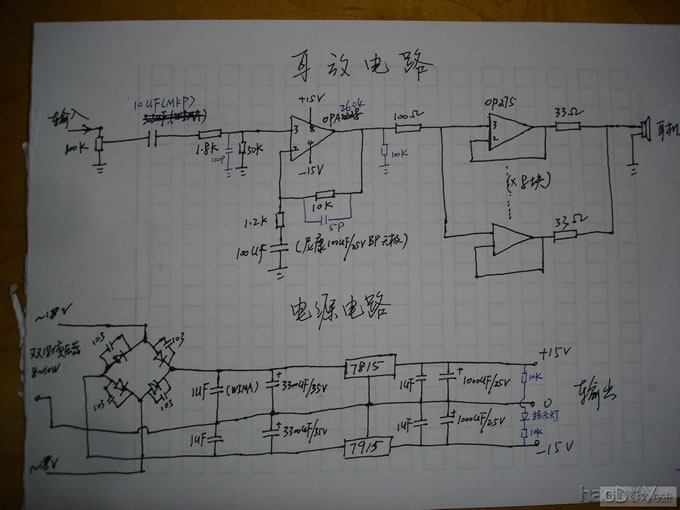 耳放电路
输入
100K
10UF(MKP)
33UF(WIMA)
1.8K
100P
50K
+15V
3
8
2
4
-15V
OPA2604
10K
5P
1.2K
100UF
(尼康100UF/25V BP无极)
100K
100Ω
OP275
3
33Ω
(×8块)
33Ω
耳机
电源电路
~18V
双18V变压器
~18V
103
103
103
103
1UF
(WIMA)
3300UF/35V
7815
1UF
1000UF/25V
+15V
10K
0
输出
指示灯
10K
1UF
3300UF/35V
7915
1UF
1000UF/25V
-15V